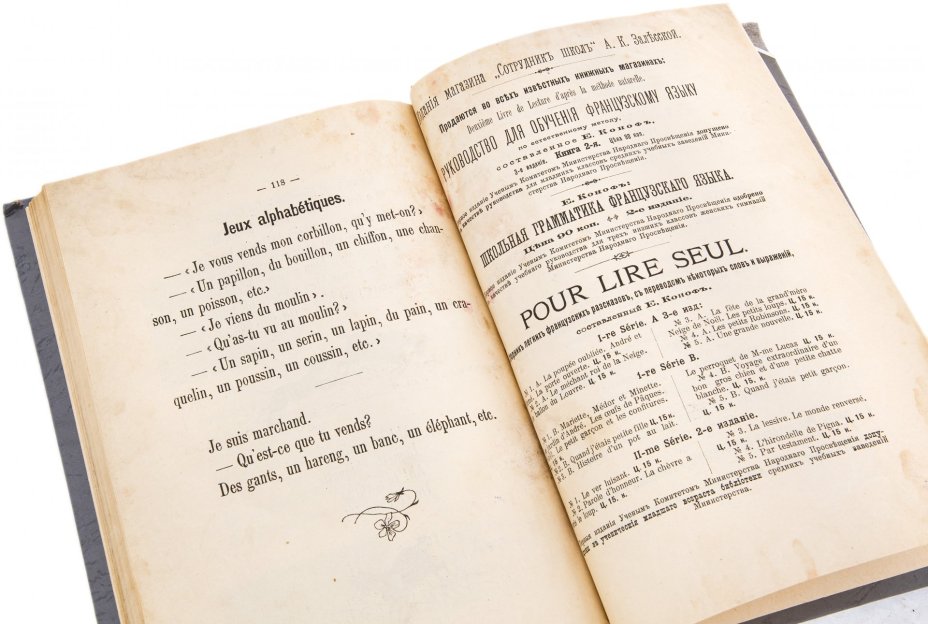 — 118 —
Jeux alphabétiques.
— ‹Je vous vends mon corbillon, qu'y met-on?›
— ‹Un papillon, du bouillon, un chiffon, une chan-
son, un poisson, etc.›
— ‹Je viens du moulin›.
— ‹Qu'as-tu vu au moulin?›
— ‹Un sapin, un serin, un lapin, du pain, un cra-
quelin, un poussin, un coussin, etc.›
Je suis marchand.
— Qu'est-ce que tu vends?
Des gants, un hareng, un banc, un éléphant, etc.
магазина „Сотрудникъ школъ“ А. К. Залѣсской.
Продаются во всѣхъ извѣстныхъ книжныхъ магазинахъ:
Deuxième Livre de Lecture d'après la méthode naturelle.
РУКОВОДСТВО ДЛЯ ОБУЧЕНІЯ ФРАНЦУЗСКОМУ ЯЗЫКУ
по естественному методу,
составленное Е. Конофъ,
3-е изданіе. Книга 2-я.
изданіе Ученымъ Комитетомъ Министерства Народнаго Просвѣщенія допущено
качествѣ руководства для младшихъ классовъ среднихъ учебныхъ заведеній Мини-
стерства Народнаго Просвѣщенія.
Е. Конофъ:
ШКОЛЬНАЯ ГРАММАТИКА ФРАНЦУЗСКАГО ЯЗЫКА.
Цѣна 90 коп. 2-е изданіе.
изданіе Ученымъ Комитетомъ Министерства Народнаго Просвѣщенія одобрено
качествѣ учебнаго руководства для трехъ низшихъ классовъ женскихъ гимназій
Министерства Народнаго Просвѣщенія.
POUR LIRE SEUL.
легкихъ французскихъ разсказовъ, съ переводомъ нѣкоторыхъ словъ и выраженій,
составленный Е. Конофъ.
I-re Série. А 3-е изд:
№ 1. A. La poupée oubliée. André et
la porte ouverte. Ц. 15 к.
№ 2. A. Le méchant roi de la Neige.
du Louvre. Ц. 15 к.
№ 3. A. La fête de la grand'mère
Neige de Noël. Les petits loups. Ц. 15 к.
№ 4. A. Les petits Robinsons. Ц. 15 к.
№ 5. A. Une grande nouvelle. Ц. 15 к.
I-re Série B.
№ 1. B. Mariette, Médor et Minette.
d'André. Les œufs de Pâques.
petit garçon et les confitures.
15 к.
B. Quand j'étais petite fille Ц. 15 к.
B. Histoire d'un pot au lait.
Le perroquet de M-me Lucas Ц. 15 к.
№ 4. B. Voyage extraordinaire d'un
bon gros chien et d'une petite chatte
blanche. Ц. 15 к.
№ 5. B. Quand j'étais petit garçon.
Ц. 15 к.
II-me Série. 2-е изданіе.
№ 1. Le ver luisant. Ц. 15 к.
№ 2. Parole d'honneur. La chèvre a
le loup. Ц. 15 к.
№ 3. La lessive. Le monde renversé.
Ц. 15 к.
№ 4. L'hirondelle de Pigna. Ц. 15 к.
№ 5. Par testament. Ц. 15 к.
изданія Ученымъ Комитетомъ Министерства Народнаго Просвѣщенія допу-
ученическія младшаго возраста библіотеки среднихъ учебныхъ заведеній
Министерства.